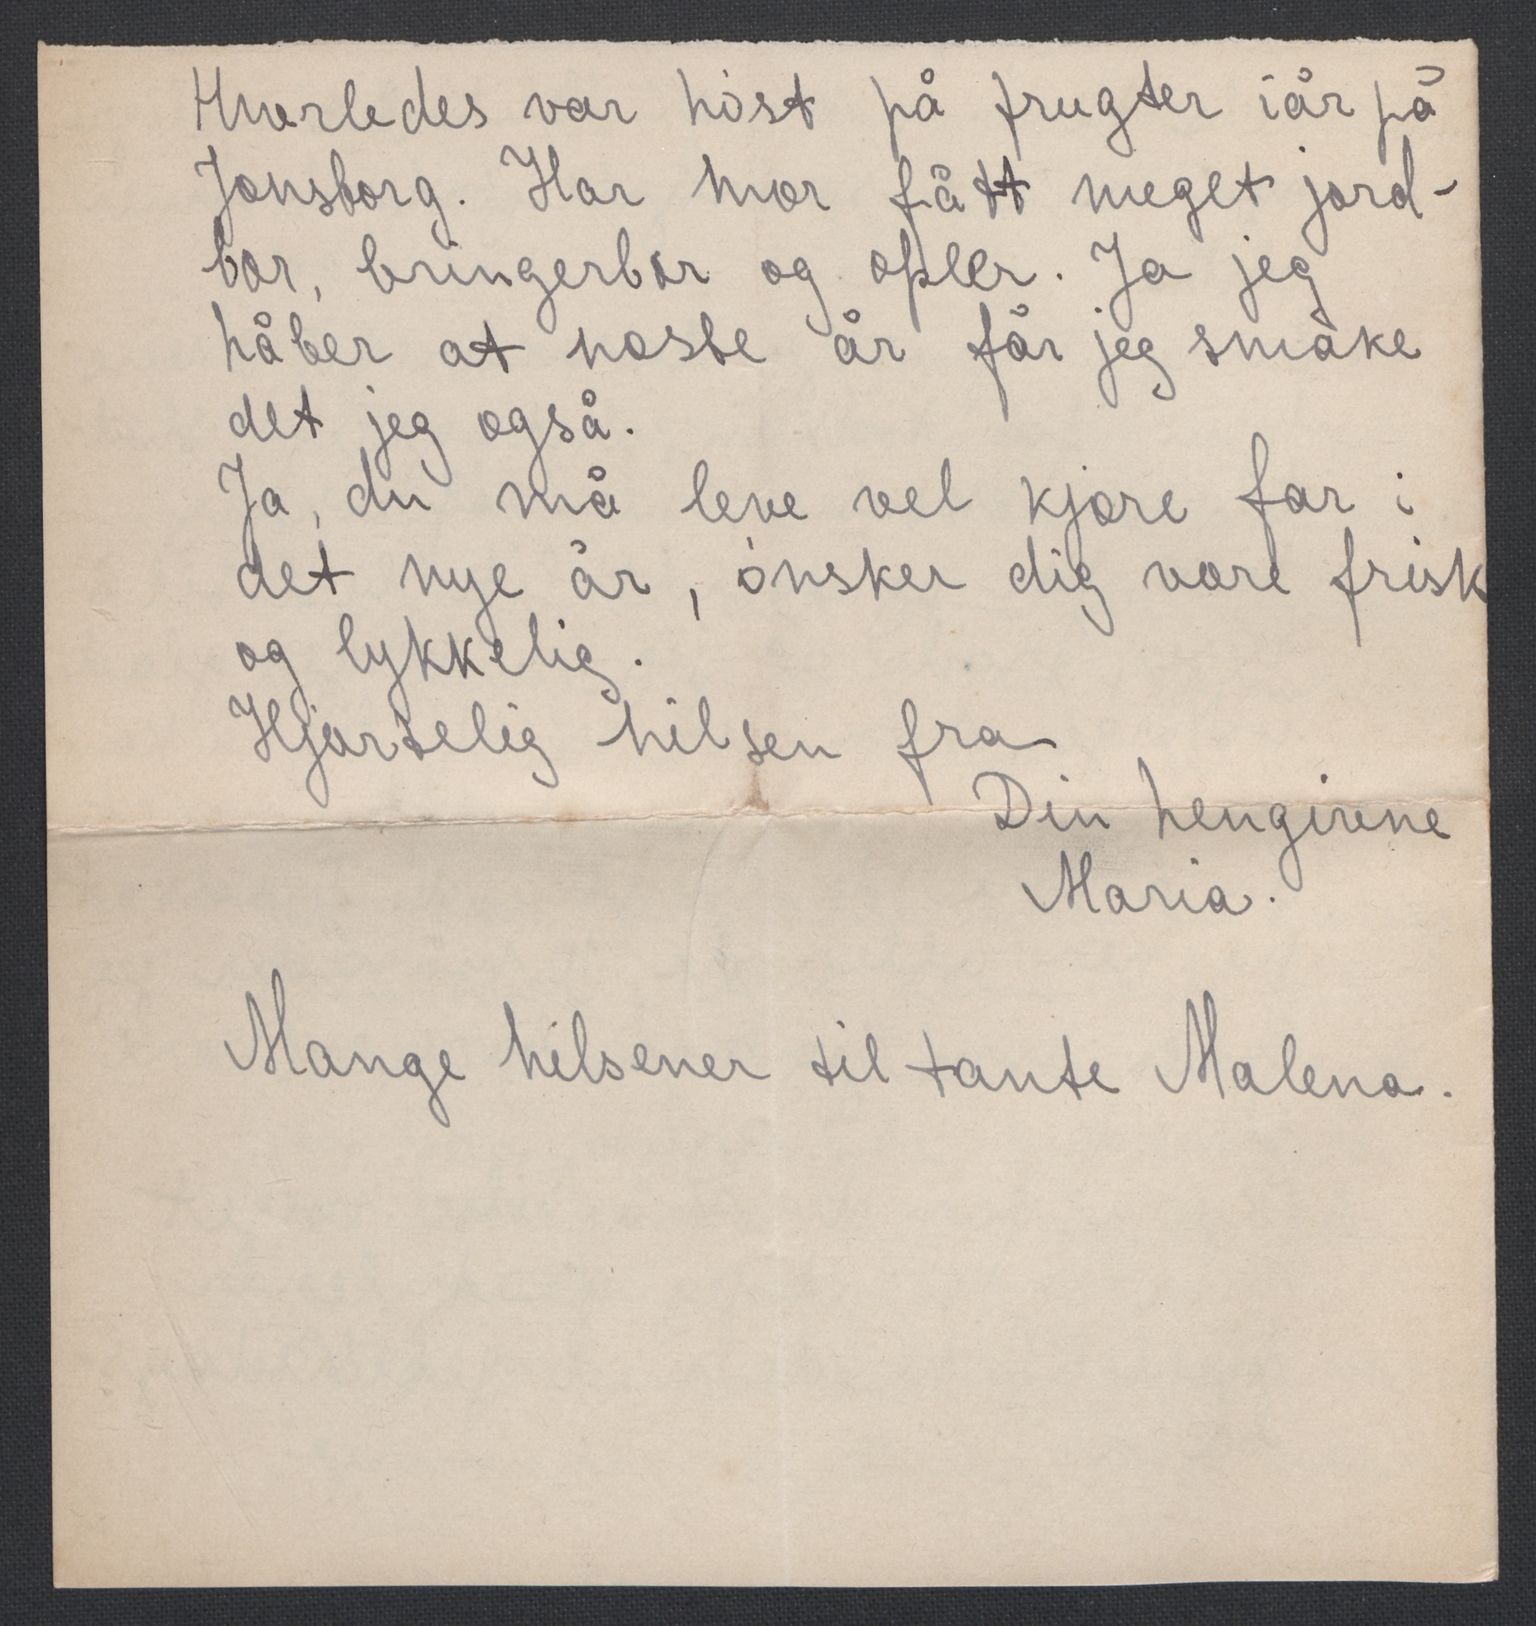 Hvorledes var høst på frugter iår på
Jonsborg. Har mor fått meget jord-
bær, bringerbær og æpler. Ja jeg
håber at næste år får jeg småke
det jeg også.
Ja, du må leve vel kjære far i
det nye år, ønsker dig være frisk
og lykkelig.
Hjærtelig hilsen fra
Din hengivne
Maria.
Mange hilsener til tante Malena.